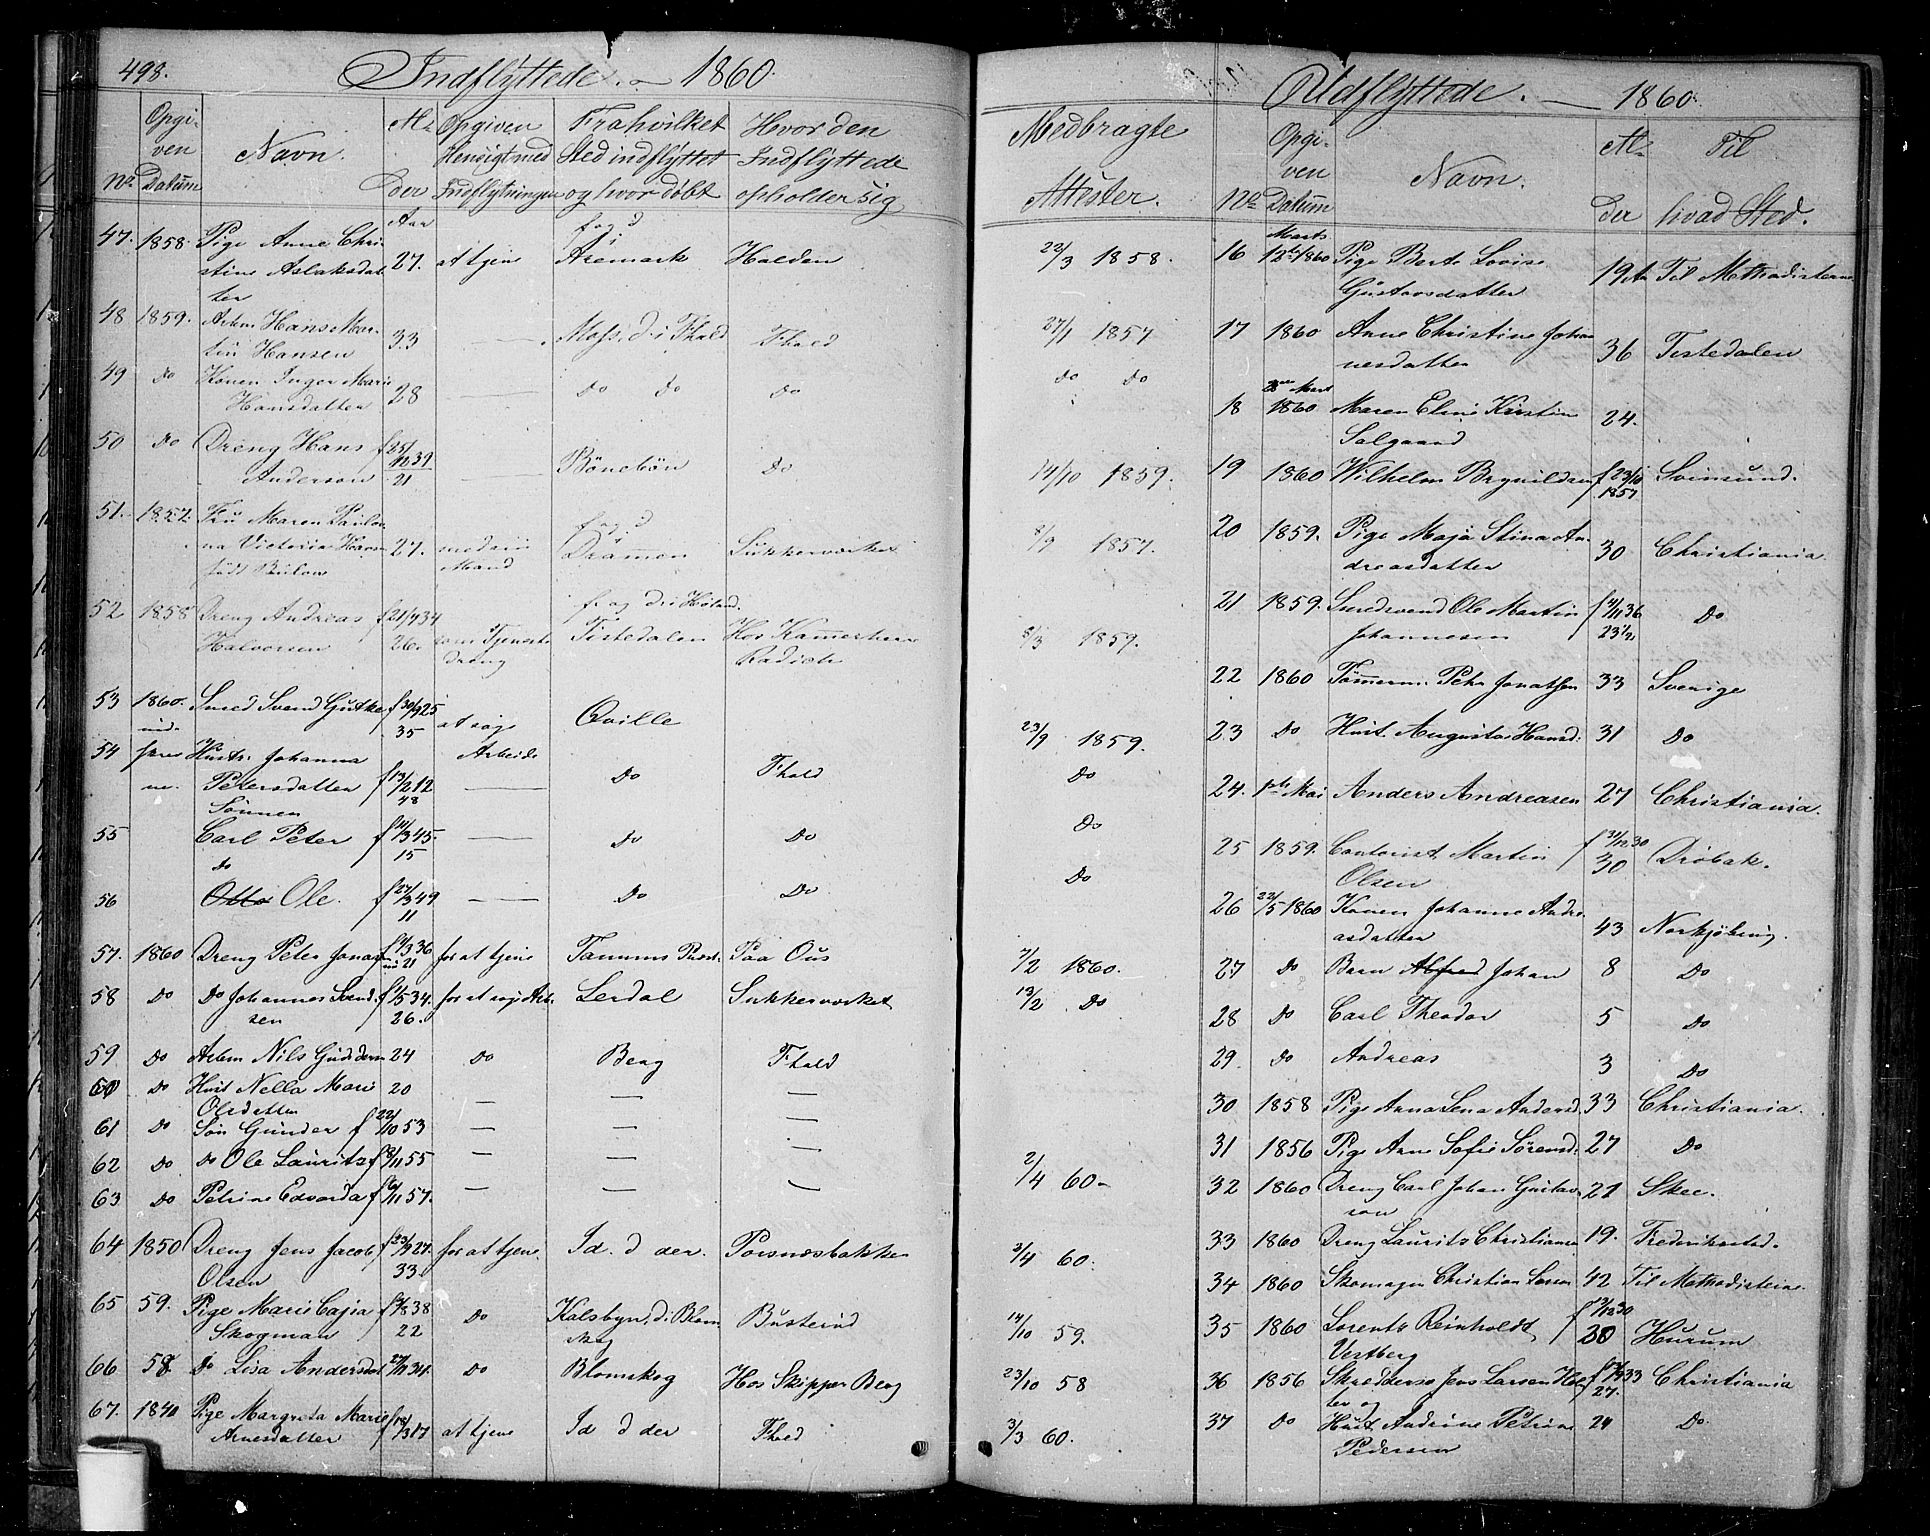 498.
Indflyttede. - 1860.
No
Opgi-
ven
Datum
Navn.
Al-
der
Opgiven
Hensigt med
Indflytningen
Fra hvilket
Sted indflyttet
og hvor døbt
Hvor den
Indflyttede
opholder sig
Aar
47. 1858. Pige Anne Chri
stine Aslaksdat
ter
27. at tjene
fog d
i
Aremark Halden
48 1859. Arbm Hans Mar-
tin Hansen
33 Moss, d. i Fhald Fhald
49 Do Konen Inger Marie
Hansdatter
28 Do Do Do
50 Do Dreng Hans
Anderson
f 25/12 39
21
Bönebön Do
51. 1857. Fru Maren Paulow
na Victoria Hansen
født Bülow
27. med sin
Mand
f og d
Drammen Sukkerværket
52 1858 Dreng Andreas
Halvorsen
f 21/4 34
26. som Tjeneste
dreng
fr og d. i Høland.
Tistedalen Hos Kammerherre
Radich
53 1860. Smed Svend Gutke f 30/9 25
35
at søge
Arbeide
Qville
54 Hustr. Johanna
Petersdatter
f 13/2 12
48
Do Fhald
55 Sønnen
Carl Peter f 11/3 45.
15
Do Do
56 do
Otto Ole. f 27/3 49
11
Do Do
57. 1860 Dreng Peter Jonas f 9/3 36
21
for at tjene Tanums Præst. Paa Ous
58 Do Do Johannes Svend.
sen
f 1/5 34.
26.
for at søge Arb. Lerdal Sukkerværket
59 Do Arbm Nils Gundersen 24 Do Berg Fhald
60 Do Hust Nella Marie
Olsdatter
20
61 Do Søn Gunder f 22/10 53
62 Do Do Ole Laurits f 8/11 55
63 Do Petrine Edvarda f 6/11 57.
64 1850 Dreng Jens Jacob
Olsen
f 23/9 27.
33.
for at tjene. Id. d der. Porsnæsbakken
65 59. Pige Marie Cajsa
Skogman
f 4/8 38
22
Do Kalsbyn, d. i Blom
skog
Busterud
66 58. Do Lisa Andersdat 27/11 34. Do Blomskog Hos Skipper Berg
67. 1840 Pige Margreta Marie
Arnesdatter
f 18/3 17 at tjene Id d der Fhald
Medbragte
Attester.
23/3 1858.
27/1 1857
Do Do
14/10 1859.
8/9 1857.
8/3 1859.
23/9 1859.
Do
Do
Do
7/2 1860.
13/2 Do
2/4 60-
3/4 60.
14/10 59.
23/10 58
3/3 60.
Udflyttede. - 1860.
No
Opgi-
ven
Datum
Navn.
Al-
der
Til
hvad Sted.
16 Marts
12te 1860 Pige Berte Lovise
Gustavsdatter
19 A. Til Methodisterne
17 1860 Anne Christine Johan
nesdatter
36 Tistedalen
18 Mart
1860 Maren Eline Kirstine
Salgaard
24.
19 1860 Wilhelm Brynildsen f 23/10
1857
Svinsund.
20 1859. Pige Maja Stina An
dreasdatter
30 Christiania
21 1859. Smedsvend Ole Martin
Johannesen
f 4/11 36
23 1/2
Do
22 1860 Tömerm. Peter Jonassen 33 Sverige
23 Do Hust. Augusta Hansd. 31 Do
24. 1ste Mai Anders Andreasen 27 Christiania.
25 1859. Contorist Martin
Olsen
f 31/12 30
30
Drøbak.
26 22/5 1860 Konen Johanne Andre
asdatter
43 Norkjøbing.
27 Do Barn Alfred Johan 8 Do
28 Do Carl Theodor 5 Do
29. Do Andreas 3 Do
30 1858 Pige Anna Lena Andersd. 33 Christiania.
31 1856 Pige Anne Sofie Sörensd. 27 Do
32 1860 Dreng Carl Johan Gustav
son
21 Skee.
33 1860 Dreng Laurits Christiansen 19. Frederikstad.
34 1860 Skomager Christian Larsen 42 Til Methodisterne
35 1860 Lorents Reinholdt
Vestberg
f 2/12 30
30
Hurum
36 1856 Skreddersv Jens Larsen Hol
ter og
f 33
27.
Christiania
37 Do Hust Andrine Petrine
Pedersen
24 Do